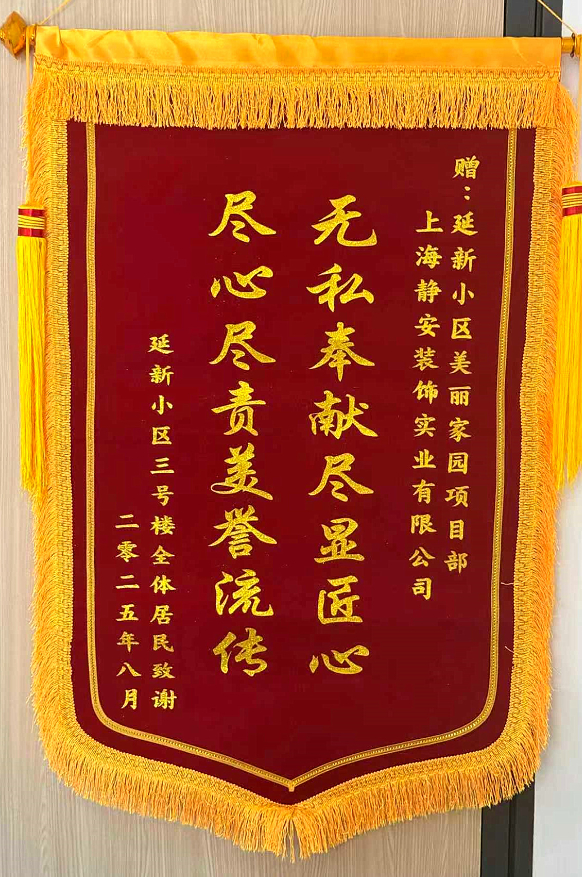 赠：延新小区美丽家园项目部
上海静安装饰实业有限公司
无私奉献尽显匠心
尽心尽责美誉流传
延新小区三号楼全体居民致谢
二零二五年八月